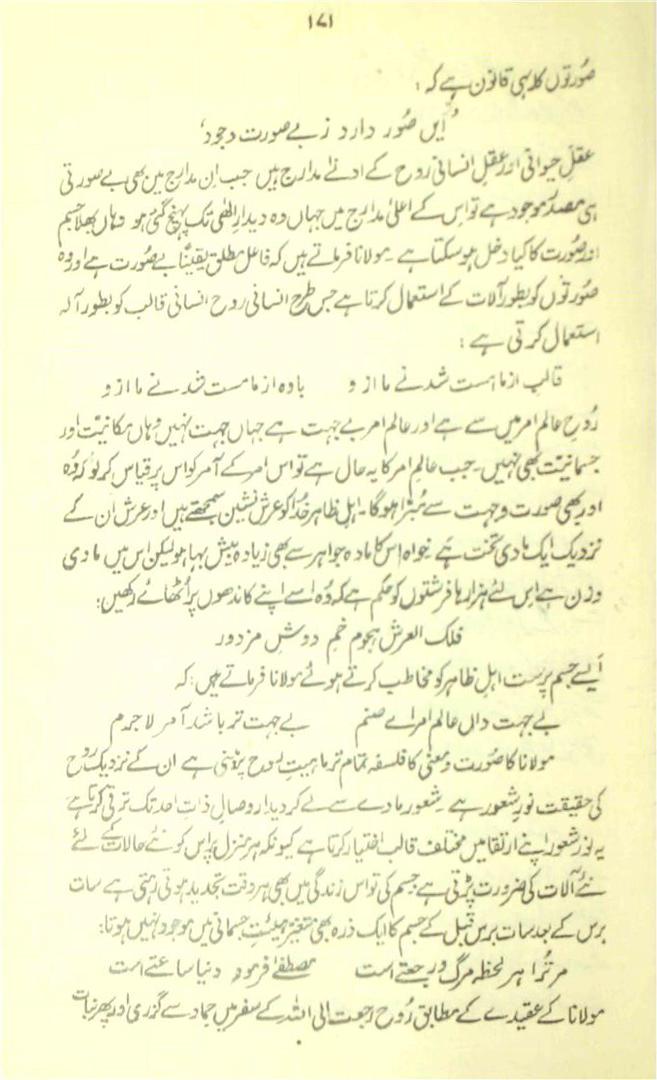 ۱۷۱
صُورتوں کا یہی قانون ہے کہ :
اُیں صُور دارد ز بے صورت وجود‘
عقلِ حیوانی اور عقلِ انسانی روح کے ادنےٰ مدارج ہیں جب اِن مدارج میں بھی بے صورتی
ہی مصدر موجود ہے تو اس کے اعلیٰ مدارج میں جہاں وہ دیدارِ الٰہی تک پہنچ گئی ہو وہاں بھلا جسم
اور صُورت کا کیا دخل ہو سکتا ہے۔ مولانا فرماتے ہیں کہ فاعلِ مطلق یقیناً بے صُورت ہے اور وہ
صُورتوں کو بطور آلات کے استعمال کرتا ہے جس طرح انسانی روح انسانی قالب کو بطور آلہ
استعمال کرتی ہے :
قالب از ما ہست شد نے ما ازو بادہ از ما مست شد نے ما ازو
رُوح عالم امر میں سے ہے اور عالم امر بے جہت ہے جہاں جہت نہیں وہاں مکانیت اور
جسمانیت بھی نہیں۔ جب عالمِ امر کا یہ حال ہے تو اس امر کے آمر کو اس پر قیاس کر لو کہ وُہ
اور بھی صورت و جہت سے مُبرّا ہوگا۔ اہل ظاہر خُدا کو عرش نشین سمجھتے ہیں اور عرش ان کے
نزدیک ایک مادی تخت ہے خواہ اس کا مادہ جواہر سے بھی زیادہ بیش بہا ہو لیکن اس میں مادی
وزن ہے اس لئے ہزارہا فرشتوں کو حکم ہے کہ وُہ اسے اپنے کاندھوں پر اُٹھائے رکھیں :
فلک العرش ہجوم خمِ دوشِ مزدور
اَیسے جسم پرست اہلِ ظاہر کو مخاطب کرتے ہوئے مولانا فرماتے ہیں : کہ
بے جہت داں عالم امر اے صنم بے جہت تر باشد آمر لاجرم
مولانا کا صُورت و معنی کا فلسفہ تمام تر ماہیتِ رُوح پر مبنی ہے ان کے نزدیک رُوح
کی حقیقت نورِ شعور ہے۔ شعور مادے سے لے کر دیدار و وصالِ ذاتِ احد تک ترقی کرتا ہے
یہ نورِ شعور اپنے ارتقا میں مختلف قالب اختیار کرتا ہے کیونکہ ہر منزل پر اس کو نئے حالات کے لئے
نئے آلات کی ضرورت پڑتی ہے جسم کی تو اس زندگی میں بھی ہر وقت تجدید ہوتی رہتی ہے سات
برس کے بعد سات برس قبل کے جسم کا ایک ذرہ بھی متغیّر ہیئتِ جسمانی میں موجود نہیں ہوتا :
مر تُرا ہر لحظہ مرگ و رجعتے است مصطفےٰ فرمود دنیا ساعتے است
مولانا کے عقیدے کے مطابق رُوح رجعت الی اللہ کے سفر میں جماد سے گزری اور پھر نبات